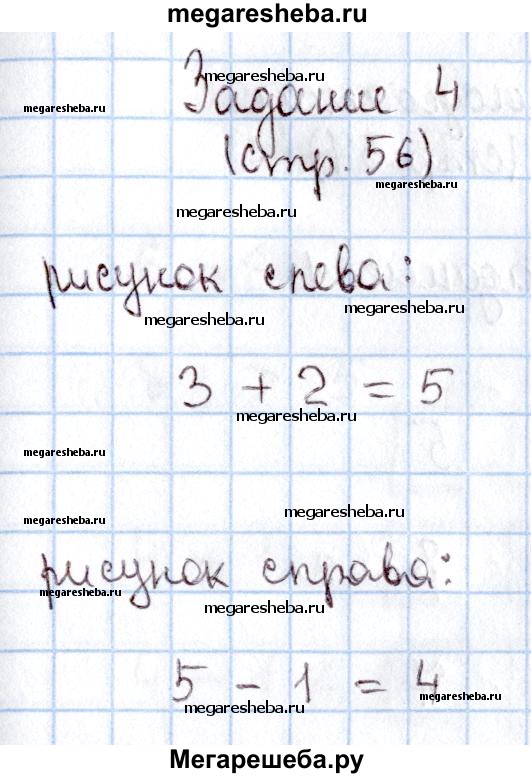 megaresheba.ru
megaresheba.ru
megaresheba.ru
Задание 4
(стр. 56)
megaresheba.ru
megaresheba.ru
рисунок слева:
megaresheba.ru
megaresheba.ru
3 + 2 = 5
megaresheba.ru
megaresheba.ru
megaresheba.ru
megaresheba.ru
рисунок справа:
megaresheba.ru
megaresheba.ru
5 - 1 = 4
megaresheba.ru
megaresheba.ru
Мегарешеба.ру